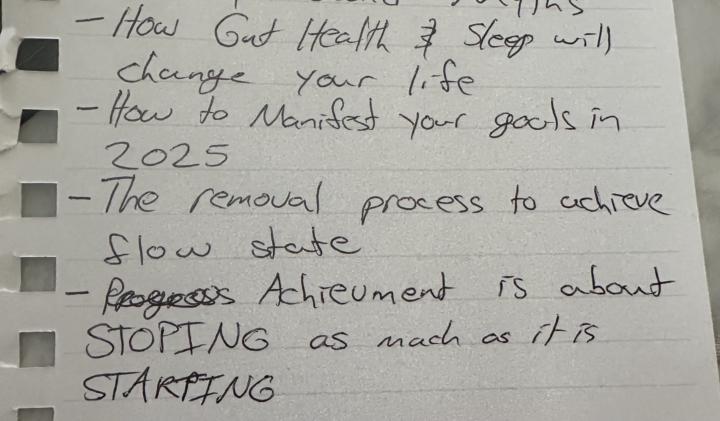 - How Gut Health & Sleep will
change your life
- How to Manifest your goals in
2025
- The removal process to achieve
flow state
- Progress Achievment is about
STOPING as mach as it is
STARTING